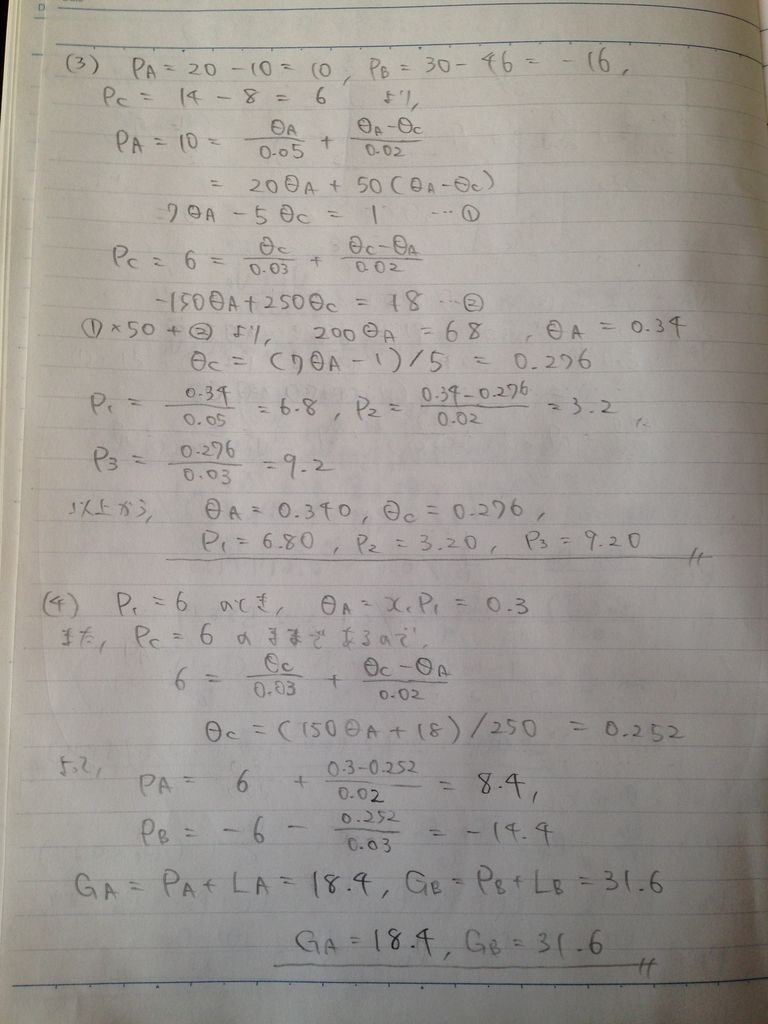 (3) PA = 20 - 10 = 10, PB = 30 - 46 = -16,
PC = 14 - 8 = 6 より,
PA = 10 = θA/0.05 + (θA-θC)/0.02
= 20θA + 50(θA-θC)
7θA - 5θC = 1 …①
PC = 6 = θC/0.03 + (θC-θA)/0.02
-150θA + 250θC = 18 …②
①×50 + ② より, 200θA = 68, θA = 0.34
θC = (7θA - 1)/5 = 0.276
P1 = 0.34/0.05 = 6.8, P2 = (0.34-0.276)/0.02 = 3.2,
P3 = 0.276/0.03 = 9.2
以上から, θA = 0.340, θC = 0.276,
P1 = 6.80, P2 = 3.20, P3 = 9.20
(4) P1 = 6 のとき, θA = x1P1 = 0.3
また, PC = 6 のままであるので,
6 = θC/0.03 + (θC-θA)/0.02
θC = (150θA + 18)/250 = 0.252
よって,
PA = 6 + (0.3-0.252)/0.02 = 8.4,
PB = -6 - 0.252/0.03 = -14.4
GA = PA + LA = 18.4, GB = PB + LB = 31.6
GA = 18.4, GB = 31.6